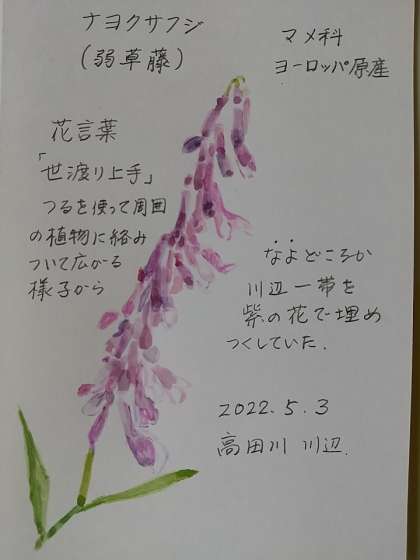 ナヨクサフジ
(弱草藤)
マメ科
ヨーロッパ原産
花言葉
「世渡り上手」
つるを使って周囲
の植物に絡み
ついて広がる
様子から
なよどころか
川辺一帯を
紫の花で埋め
つくしていた.
2022.5.3
高田川 川辺.